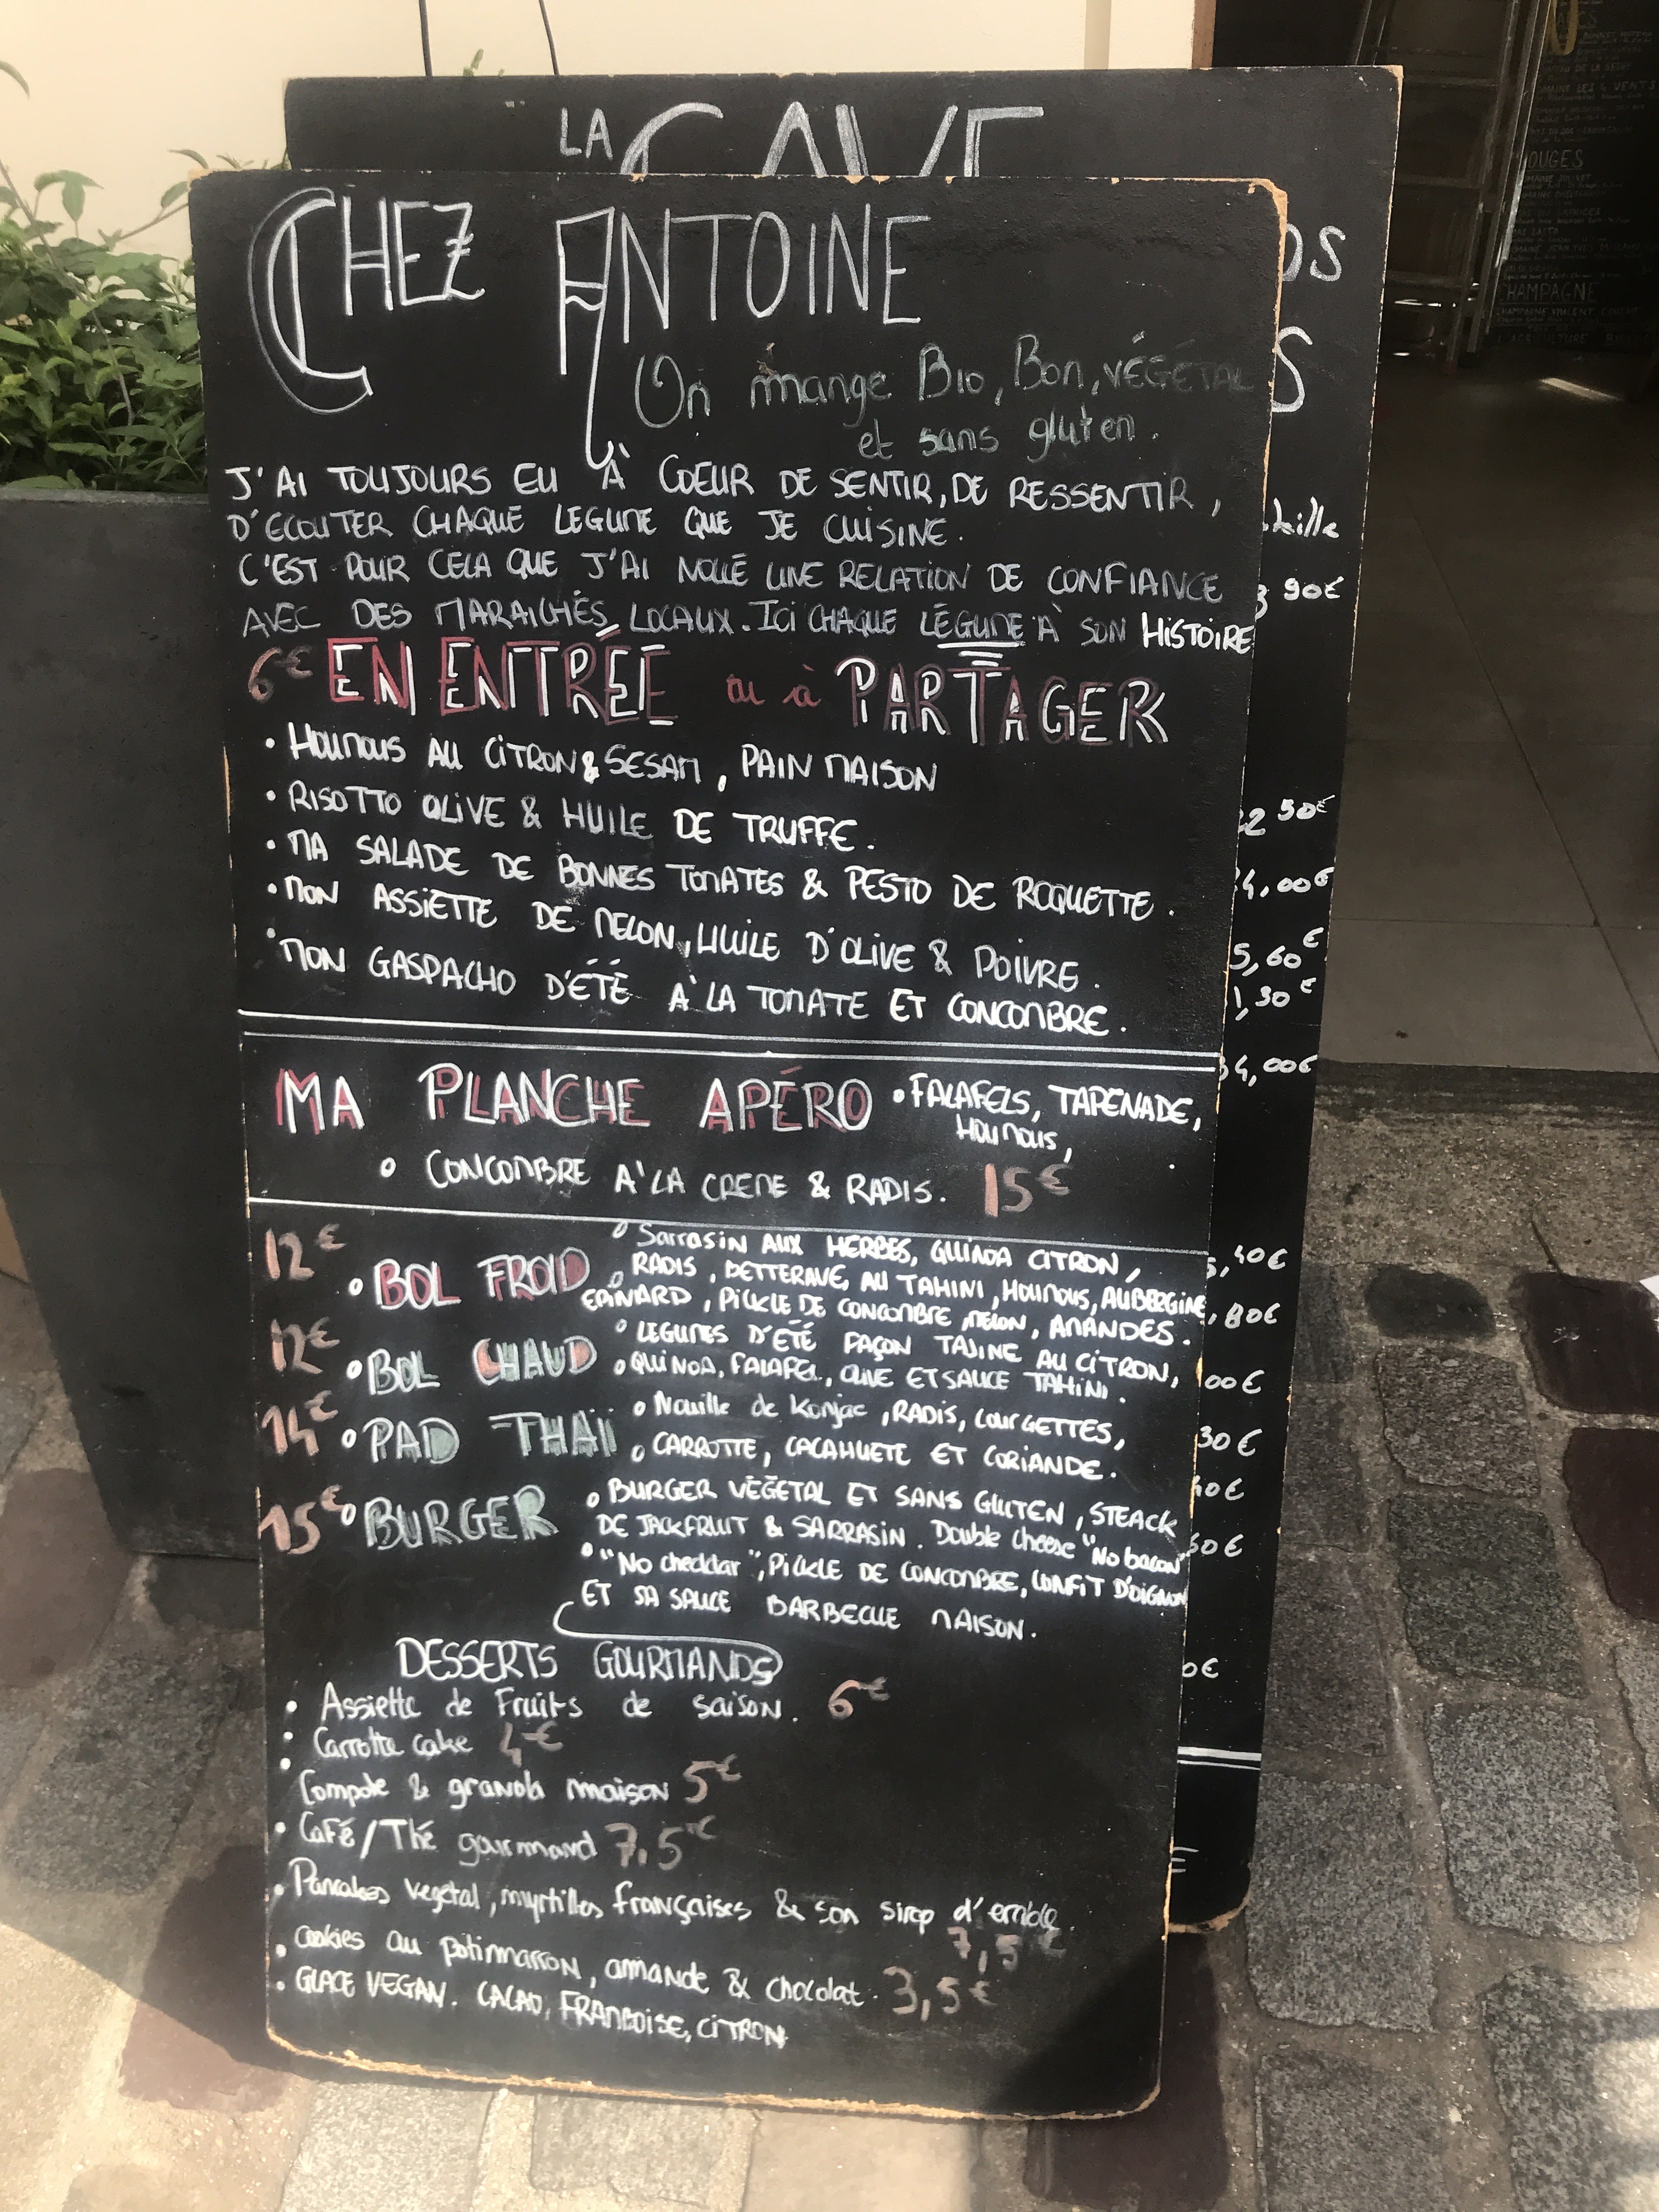 LA CAVE
CHEZ ANTOINE
On mange Bio, Bon, VÉGÉTAL
et sans gluten.
J'AI TOUJOURS EU À COEUR DE SENTIR, DE RESSENTIR,
D'ECOUTER CHAQUE LEGUME QUE JE CUISINE.
C'EST POUR CELA QUE J'AI NOUÉ UNE RELATION DE CONFIANCE
AVEC DES MARAICHÉS LOCAUX. ICI CHAQUE LÉGUME À SON HISTOIRE
6€ EN ENTRÉE ou à PARTAGER
• HOUMOUS AU CITRON & SESAM, PAIN MAISON
• RISOTTO OLIVE & HUILE DE TRUFFE.
• MA SALADE DE BONNES TOMATES & PESTO DE ROQUETTE.
• MON ASSIETTE DE MELON, HUILE D'OLIVE & POIVRE.
• MON GASPACHO D'ÉTÉ À LA TOMATE ET CONCOMBRE.
MA PLANCHE APÉRO • FALAFELS, TAPENADE,
HOUMOUS,
• CONCOMBRE À LA CREME & RADIS. 15€
12€ • BOL FROID • Sarrasin AUX HERBES, QUINOA CITRON,
• RADIS, BETTERAVE AU TAHINI, HOUMOUS, AUBERGINE
EPINARD, PICKLE DE CONCOMBRE, MELON, AMANDES.
12€ • BOL CHAUD • LEGUMES D'ÉTÉ FAÇON TAJINE AU CITRON,
• QUINOA, FALAFEL, OLIVE ET SAUCE TAHINI.
14€ • PAD THAÏ • Nouille de Konjac, RADIS, COURGETTES,
• CARROTTE, CACAHUETE ET CORIANDE.
15€ • BURGER • BURGER VÉGÉTAL ET SANS GLUTEN, STEACK
DE JACKFRUIT & SARRASIN. Double cheese "No bacon"
• "No cheddar", PICKLE DE CONCOMBRE, CONFIT D'OIGNON
ET SA SAUCE BARBECUE MAISON.
DESSERTS GOURMANDS
• Assiette de Fruits de saison. 6€
• Carrotte cake 4€
• Compote & granola maison 5€
• Café/Thé gourmand 7,5€
• Pancakes vegétal, myrtilles françaises & son sirop d'erable.
7,5€
• cookies au potimarron, amande & chocolat. 3,5€
• GLACE VEGAN. CACAO, FRAMBOISE, CITRON
90€
50€
4,00€
5,60€
1,30€
4,00€
,40€
,80€
00€
30€
0€
0€
0€
ROUGES
CHAMPAGNE